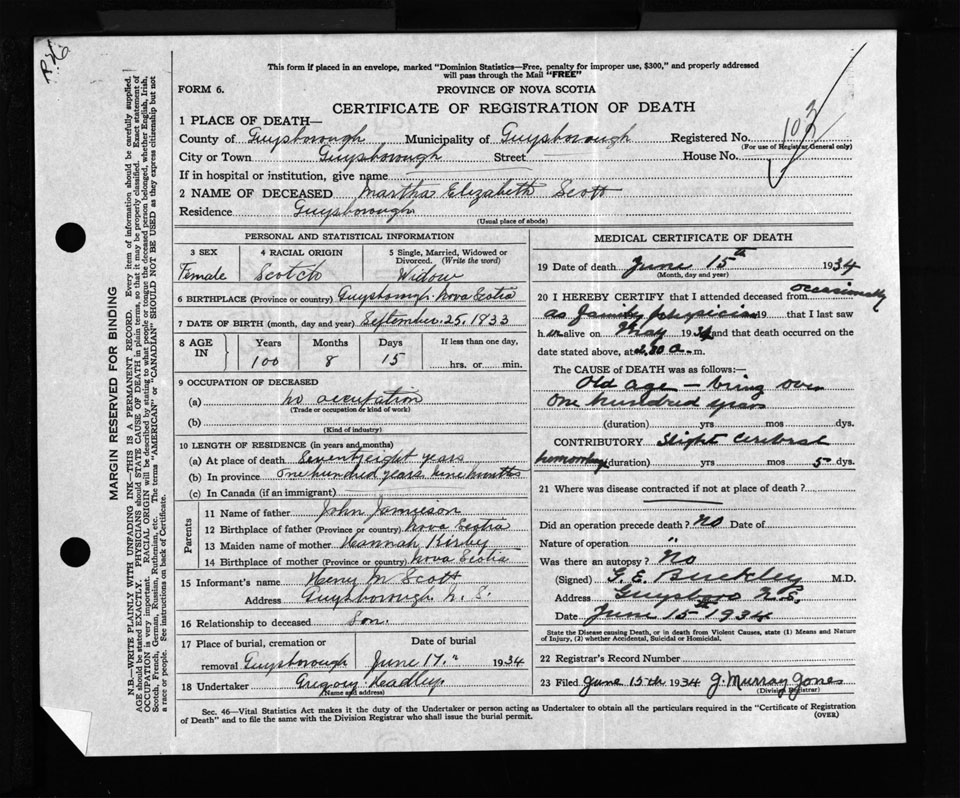 This form if placed in an envelope, marked "Dominion Statistics—Free, penalty for improper use, $300," and properly addressed
will pass through the Mail "FREE"
FORM 6.
PROVINCE OF NOVA SCOTIA
CERTIFICATE OF REGISTRATION OF DEATH
1 PLACE OF DEATH—
County of Guysborough Municipality of Guysborough Registered No. 103
(For use of Registrar General only)
City or Town Guysborough Street House No.
If in hospital or institution, give name
2 NAME OF DECEASED Martha Elizabeth Scott
Residence Guysborough
(Usual place of abode)
PERSONAL AND STATISTICAL INFORMATION
3 SEX 4 RACIAL ORIGIN 5 Single, Married, Widowed or
Divorced. (Write the word)
Female Scotch Widow
6 BIRTHPLACE (Province or country) Guysborough Nova Scotia
7 DATE OF BIRTH (month, day and year) September 25, 1833
8 AGE IN Years Months Days If less than one day,
100 8 15 hrs. or min.
9 OCCUPATION OF DECEASED
(a) no occupation
(Trade or occupation or kind of work)
(b)
(Kind of industry)
10 LENGTH OF RESIDENCE (in years and months)
(a) At place of death Seventy eight years
(b) In province One hundred years nine months
(c) In Canada (if an immigrant)
Parents
11 Name of father John Jamieson
12 Birthplace of father (Province or country) Nova Scotia
13 Maiden name of mother Hannah Kirby
14 Birthplace of mother (Province or country) Nova Scotia
15 Informant's name Henry M Scott
Address Guysborough N. S.
16 Relationship to deceased Son.
17 Place of burial, cremation or Date of burial
removal Guysborough June 17" 1934
18 Undertaker Gregory Headley
(Name and address)
MEDICAL CERTIFICATE OF DEATH
19 Date of death June 15th 1934
(Month, day and year)
20 I HEREBY CERTIFY that I attended deceased from occasionally
as family physician 19 that I last saw
h er alive on May 1934 and that death occurred on the
date stated above, at 2.30 a. m.
The CAUSE of DEATH was as follows:
Old age — being over
One hundred years
(duration) yrs mos dys.
CONTRIBUTORY Slight Cerebral
hemorrhage (duration) yrs mos 5 dys.
21 Where was disease contracted if not at place of death?
Did an operation precede death? No Date of
Nature of operation "
Was there an autopsy? No
(Signed) G. E. Buckley M.D.
Address Guysboro N.S.
Date June 15th 1934
State the Disease causing Death, or in death from Violent Causes, state (1) Means and Nature
of Injury, (2) whether Accidental, Suicidal or Homicidal.
22 Registrar's Record Number
23 Filed June 15th 1934 J. Murray Jones
(Division Registrar)
Sec. 46—Vital Statistics Act makes it the duty of the Undertaker or person acting as Undertaker to obtain all the particulars required in the "Certificate of Registration
of Death" and to file the same with the Division Registrar who shall issue the burial permit.
(OVER)
MARGIN RESERVED FOR BINDING
N.B.—WRITE PLAINLY WITH UNFADING INK—THIS IS A PERMANENT RECORD. Every item of information should be carefully supplied.
AGE should be stated EXACTLY. PHYSICIANS should STATE CAUSE OF DEATH in plain terms, so that it may be properly classified. Exact statement of
OCCUPATION is very important. RACIAL ORIGIN will be described by stating to what people or tongue the deceased person belonged, whether English, Irish,
Scotch, French, German, Russian, Ruthenian, etc. The terms "AMERICAN" or "CANADIAN" SHOULD NOT BE USED as they express citizenship but not
a race or people. See instructions on back of Certificate.